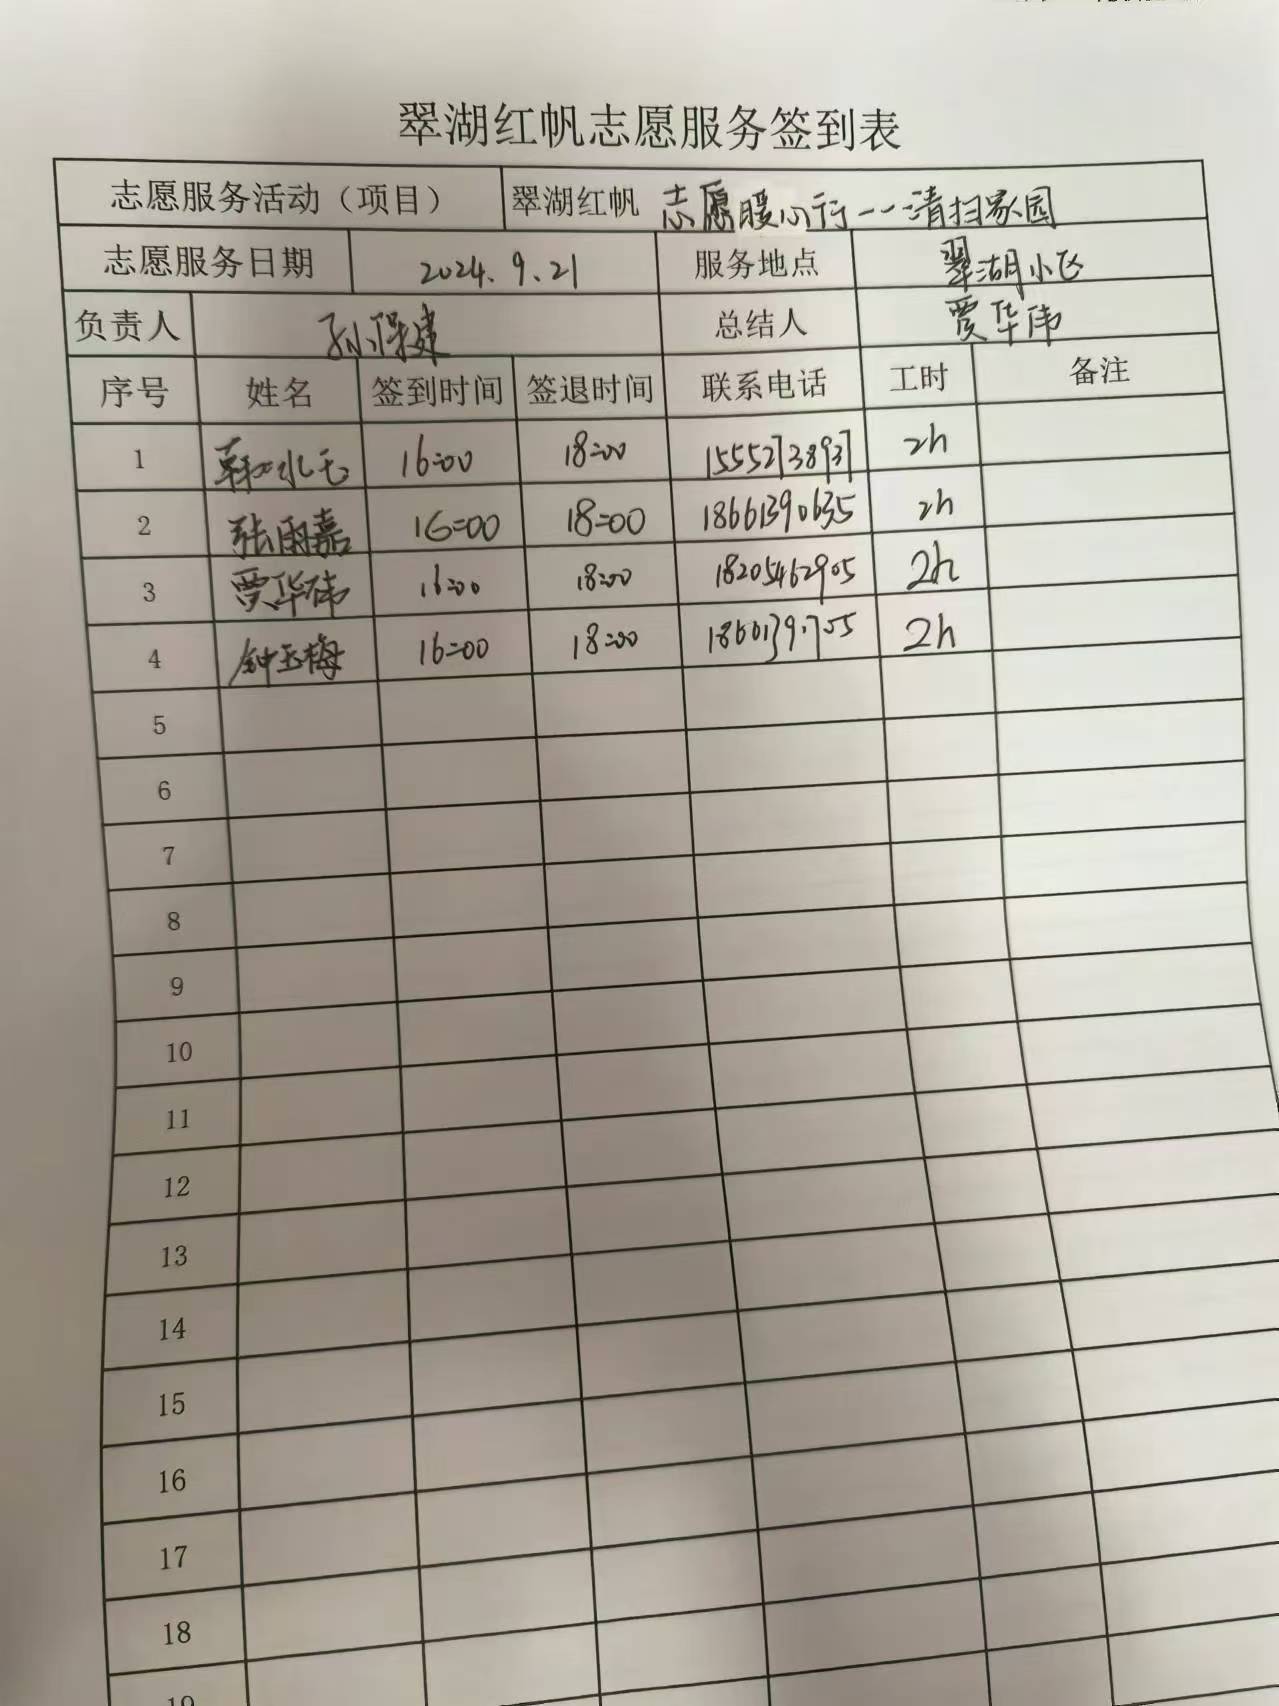 翠湖红帆志愿服务签到表
志愿服务活动（项目） 翠湖红帆 志愿暖心行--清扫家园
志愿服务日期 2024.9.21 服务地点 翠湖小区
负责人 孙保建 总结人 贾华伟
序号 姓名 签到时间 签退时间 联系电话 工时 备注
1 16:00 18:00 15552738937 2h
2 张雨嘉 16:00 18:00 18661390635 2h
3 贾华伟 16:00 18:00 18205462905 2h
4 钟玉梅 16:00 18:00 2h
5
6
7
8
9
10
11
12
13
14
15
16
17
18
19